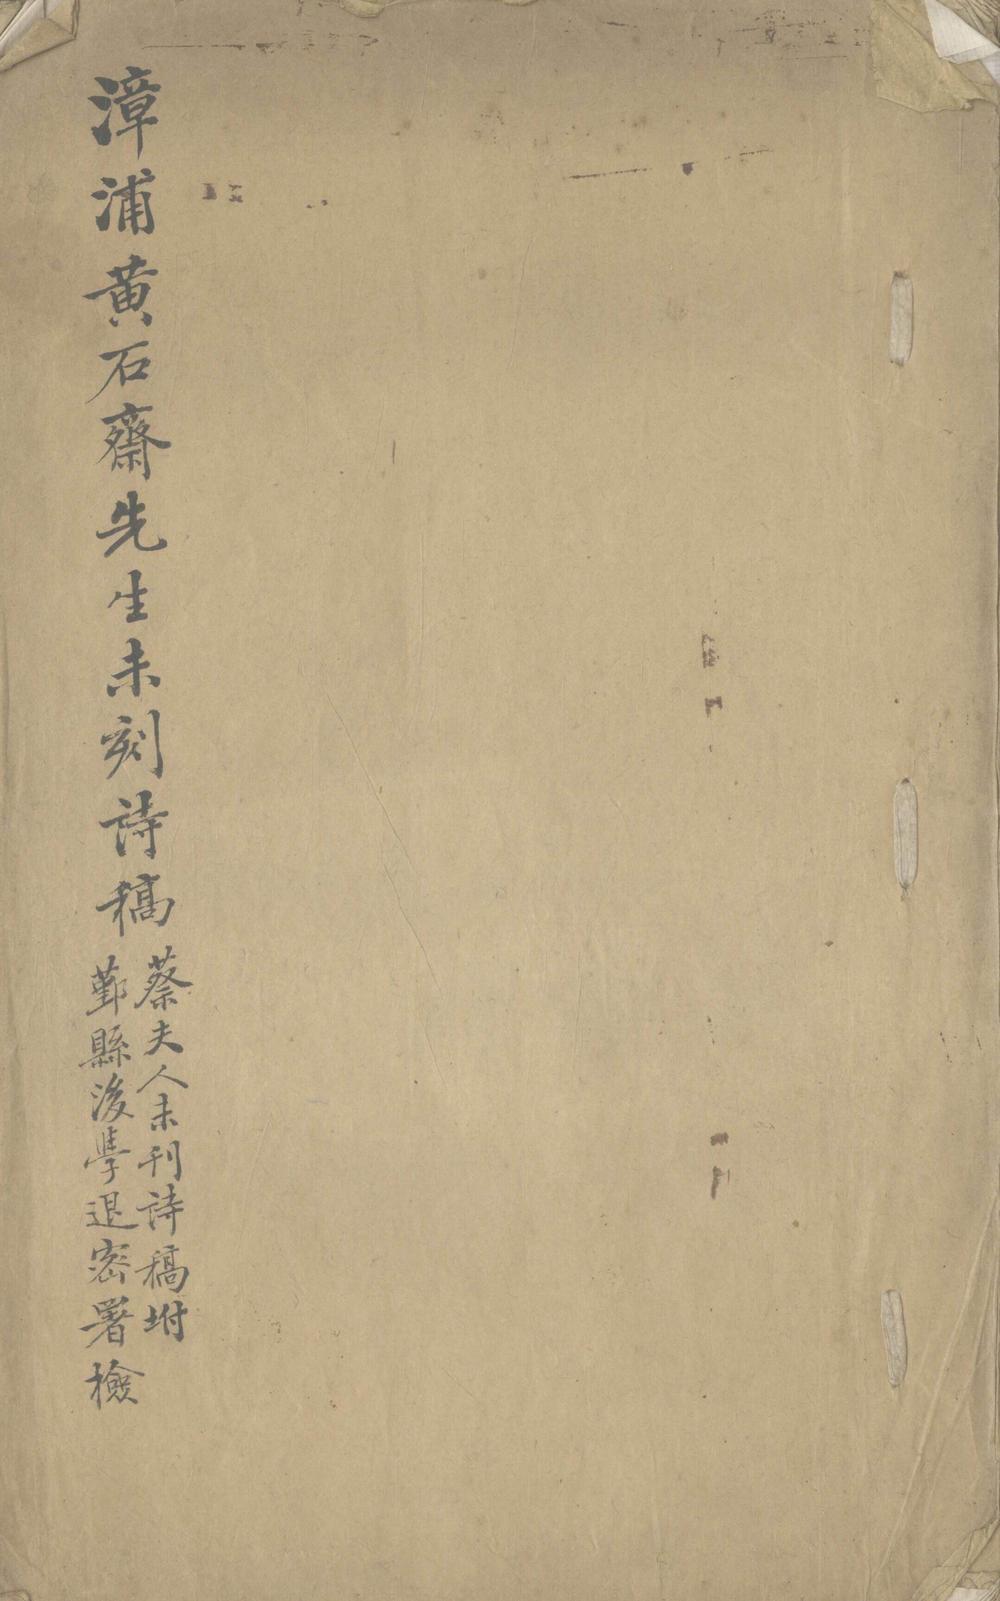 漳浦黄石齋先生未刻詩稿
蔡夫人未刊詩稿坿
鄞縣後學退密署檢